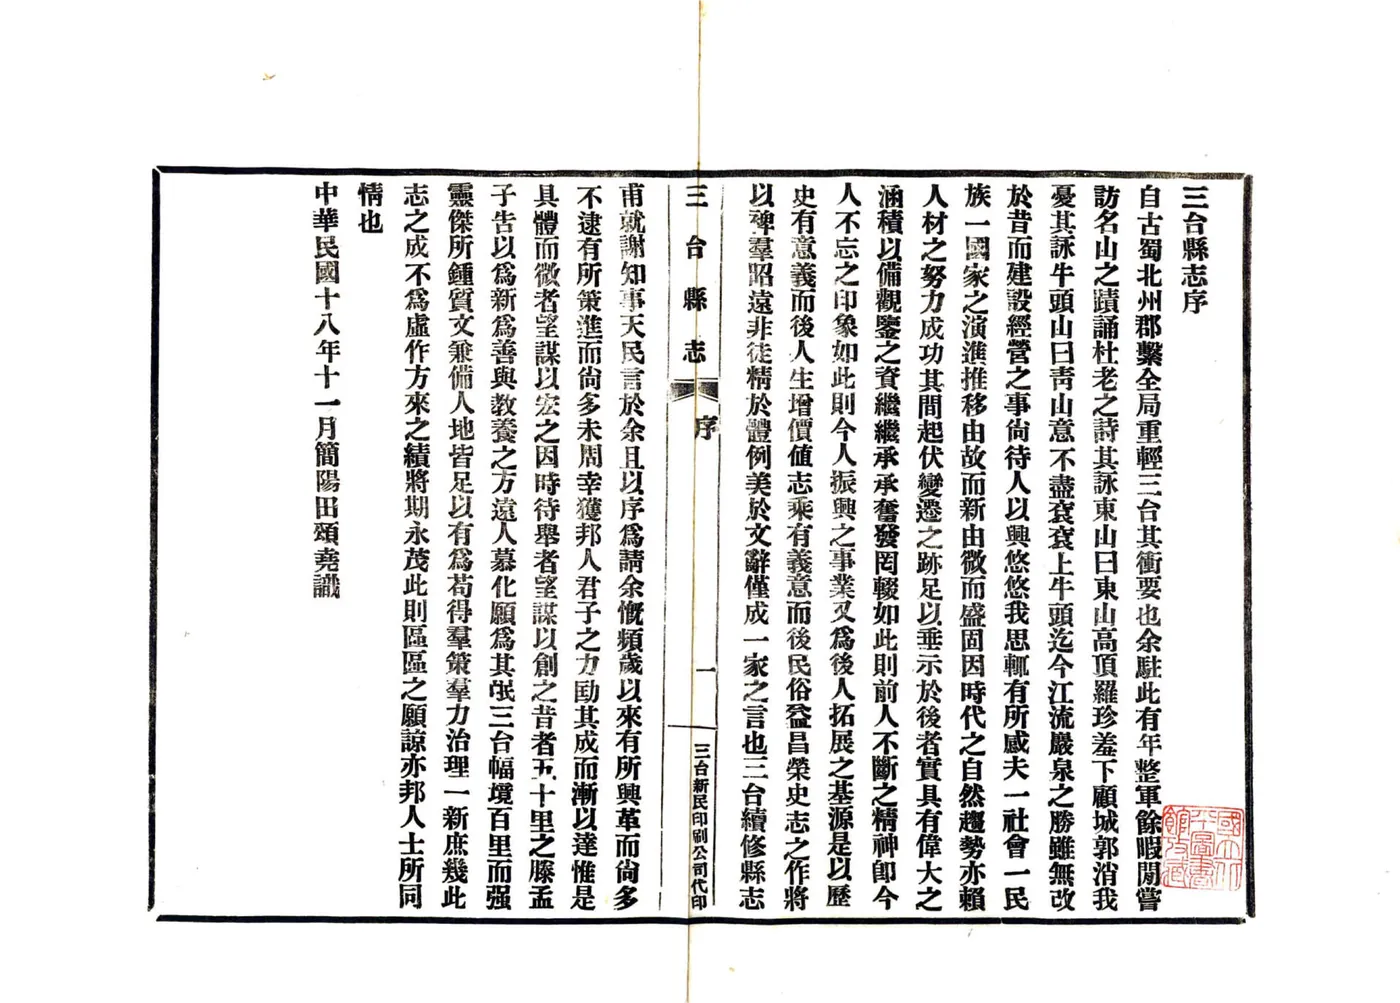 三台縣志序
自古蜀北州郡繫全局重輕三台其衝要也余駐此有年整軍餘暇閒嘗
訪名山之蹟誦杜老之詩其詠東山曰東山高頂羅珍羞下顧城郭消我
憂其詠牛頭山曰靑山意不盡袞袞上牛頭迄今江流嚴泉之勝雖無改
於昔而建設經營之事尙待人以興悠悠我思輒有所感夫一社會一民
族一國家之演進推移由故而新由微而盛固因時代之自然趨勢亦賴
人材之努力成功其間起伏變遷之跡足以垂示於後者實具有偉大之
涵積以備觀鑒之資繼繼承承奮發罔輟如此則前人不斷之精神卽今
人不忘之印象如此則今人振興之事業又爲後人拓展之基源是以歷
史有意義而後人生增價値志乘有義意而後民俗益昌榮史志之作將
以裨羣昭遠非徒精於體例美於文辭僅成一家之言也三台續修縣志
三台縣志
序
一
三台新民印刷公司代印
甫就謝知事天民言於余且以序爲請余慨頻歲以來有所興革而尙多
不逮有所策進而尙多未周幸獲邦人君子之力勖其成而漸以達惟是
具體而微者望謀以宏之因時待舉者望謀以創之昔者五十里之滕孟
子吿以爲新爲善與敎養之方遠人慕化願爲其氓三台幅境百里而强
靈傑所鍾質文兼備人地皆足以有爲苟得羣策羣力治理一新庶幾此
志之成不爲虛作方來之績將期永茂此則區區之願諒亦邦人士所同
情也
中華民國十八年十一月簡陽田頌堯識
國立北平圖書館收藏